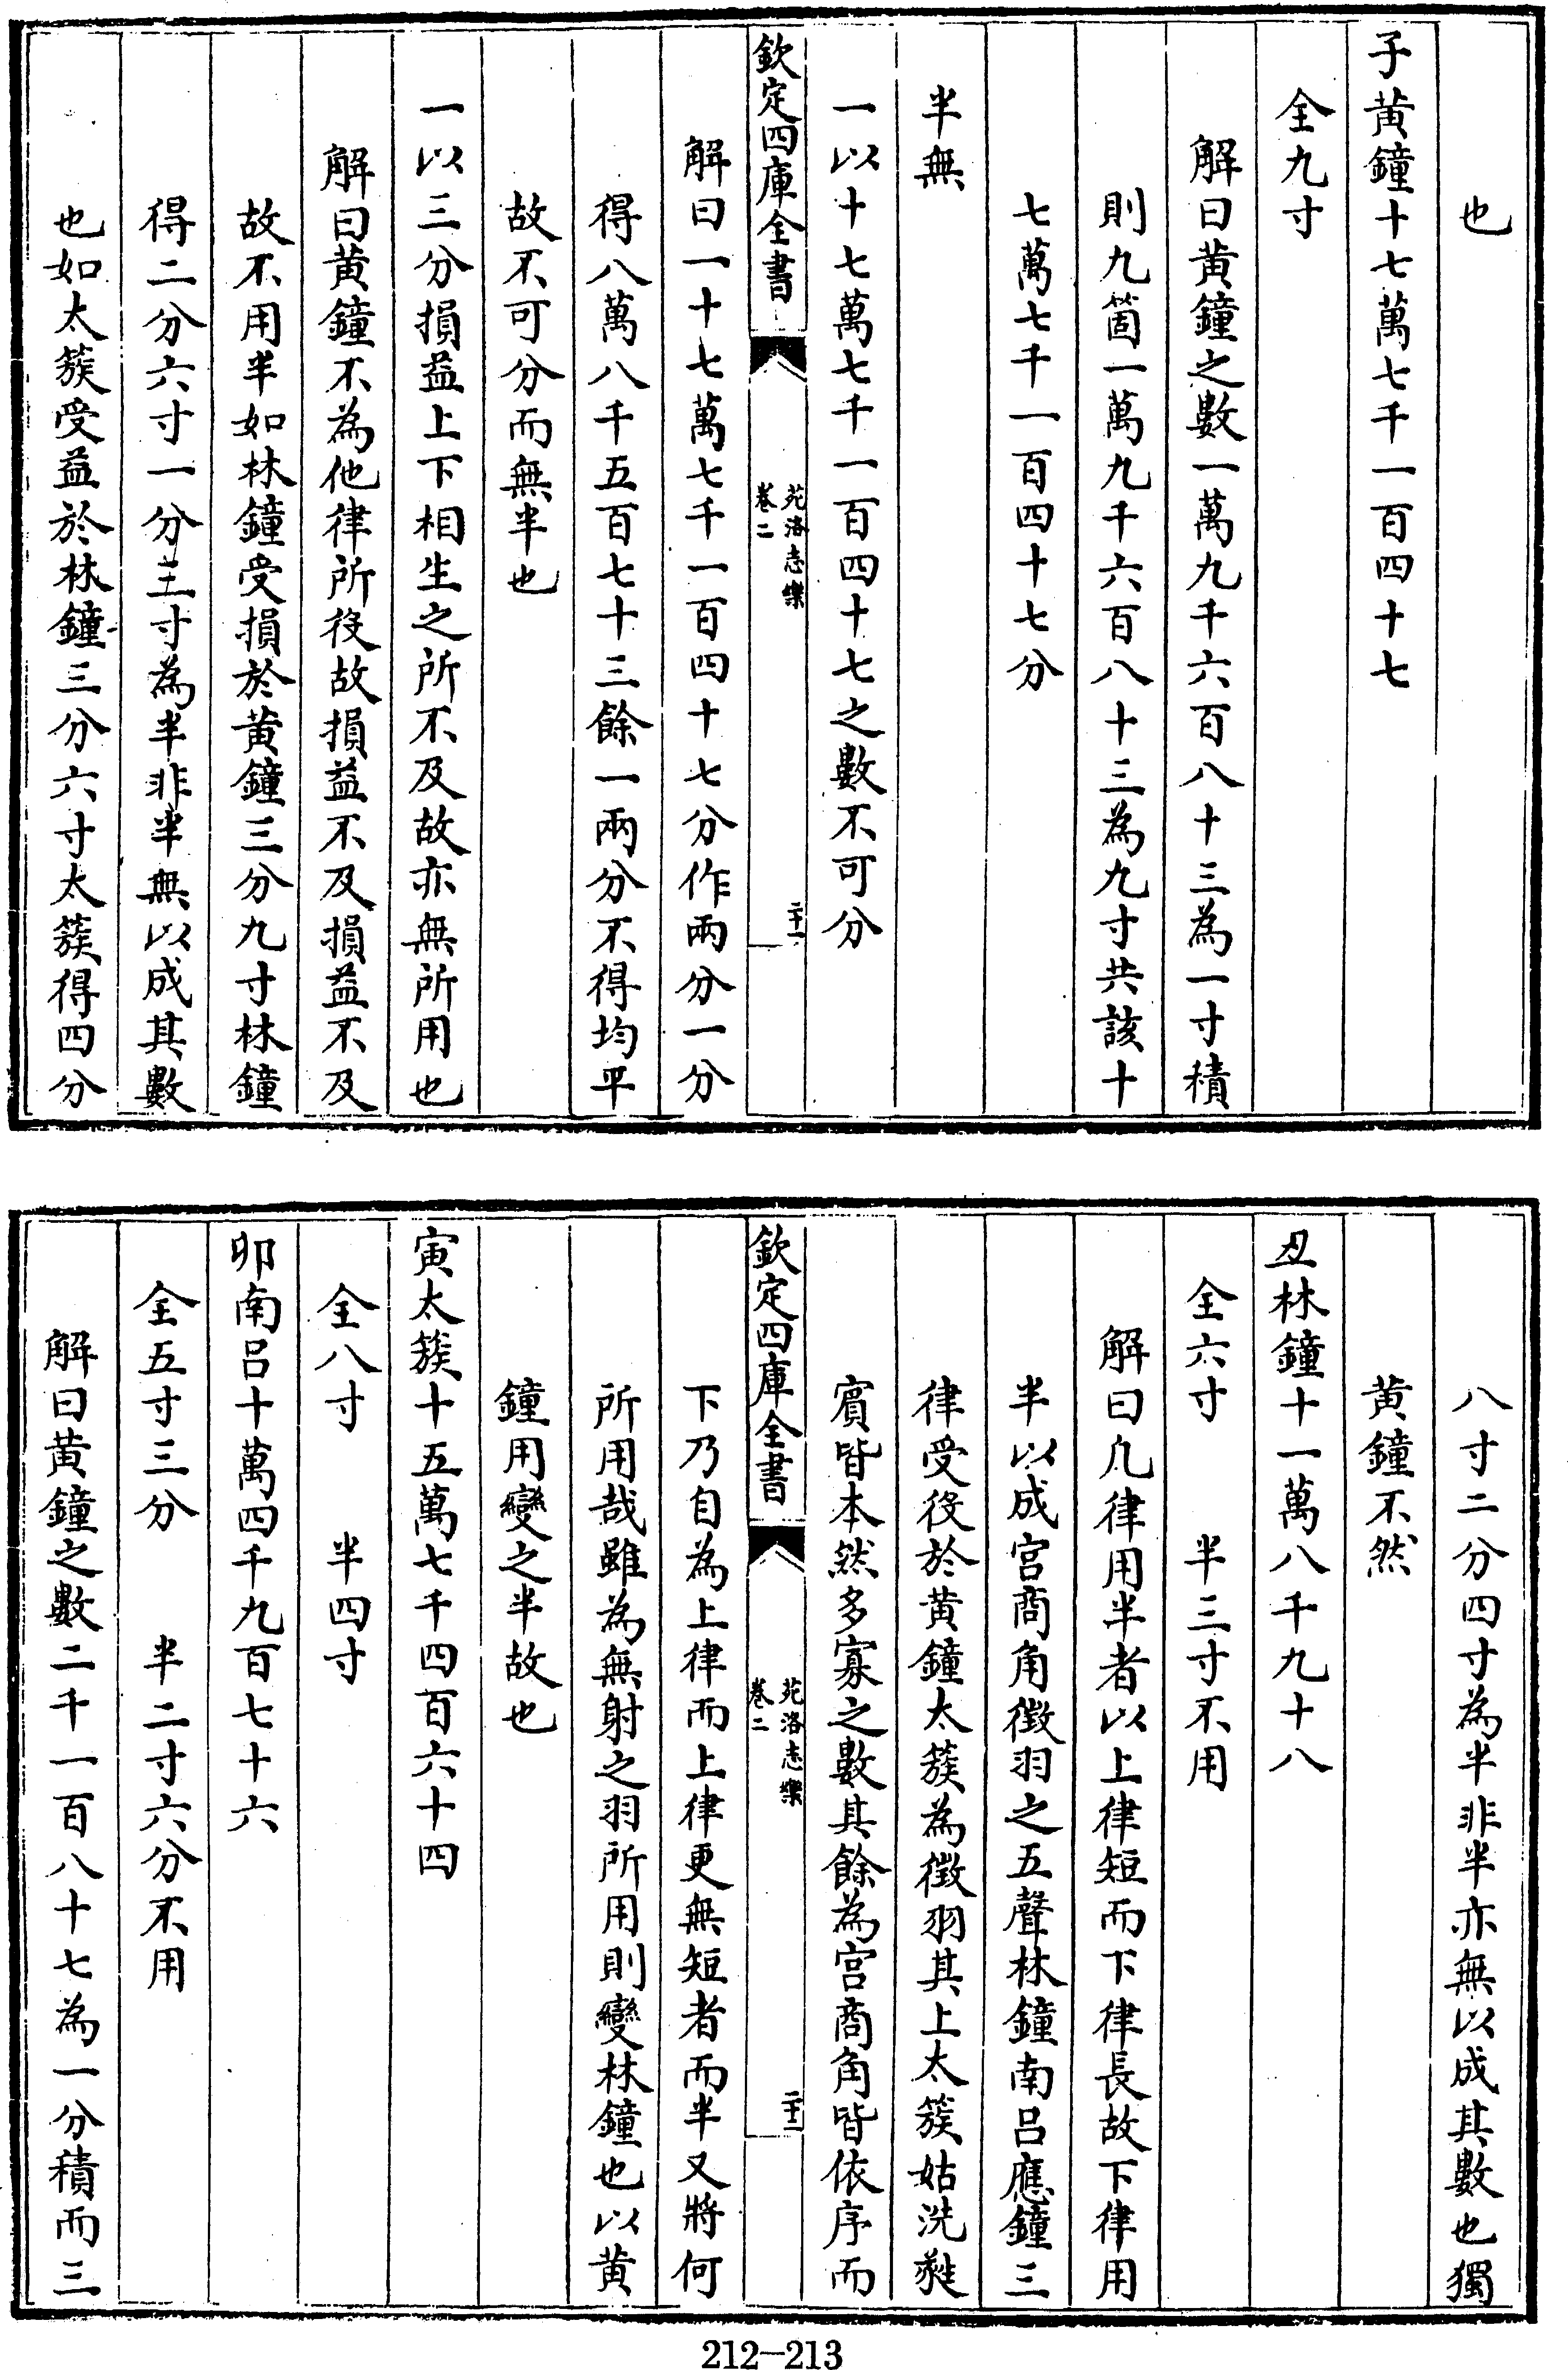 也
子黃鐘十七萬七千一百四十七
全九寸
解曰黃鐘之數一萬九千六百八十三為一寸積
則九箇一萬九千六百八十三為九寸共該十
七萬七千一百四十七分
半無
一以十七萬七千一百四十七之數不可分
欽定四庫全書
苑洛志樂
卷二
二十一
解曰一十七萬七千一百四十七分作兩分一分
得八萬八千五百七十三餘一兩分不得均平
故不可分而無半也
一以三分損益上下相生之所不及故亦無所用也
解曰黃鐘不為他律所役故損益不及損益不及
故不用半如林鐘受損於黃鐘三分九寸林鐘
得二分六寸一分三寸為半非半無以成其數
也如太簇受益於林鐘三分六寸太簇得四分
八寸二分四寸為半非半亦無以成其數也獨
黃鐘不然
丑林鐘十一萬八千九十八
全六寸 半三寸不用
解曰凡律用半者以上律短而下律長故下律用
半以成宫商角徵羽之五聲林鐘南呂應鐘三
律受役於黃鐘太簇為徵羽其上太簇姑洗蕤
賓皆本然多寡之數其餘為宫商角皆依序而
欽定四庫全書
苑洛志樂
卷二
二十二
下乃自為上律而上律更無短者而半又將何
所用哉雖為無射之羽所用則變林鐘也以黃
鐘用變之半故也
寅太簇十五萬七千四百六十四
全八寸 半四寸
卯南呂十萬四千九百七十六
全五寸三分 半二寸六分不用
解曰黃鐘之數二千一百八十七為一分積而三
212-213